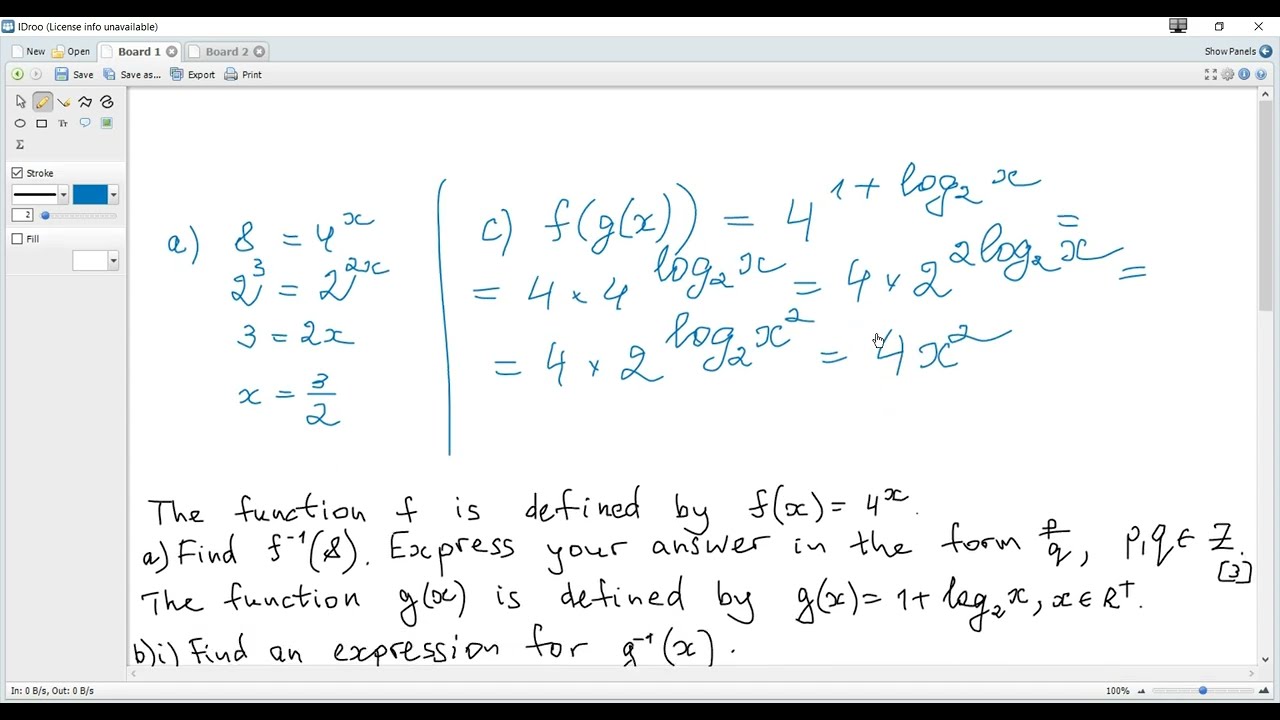 IDroo (License info unavailable)
New Open Board 1 Board 2 Show Panels
Save Save as... Export Print
Stroke
2
Fill
a) 8 = 4^x
2^3 = 2^2x
3 = 2x
x = 3/2
c) f(g(x)) = 4^(1 + log₂ x) =
= 4 × 4^(log₂ x) = 4 × 2^(2log₂ x) =
= 4 × 2^(log₂ x²) = 4x²
The function f is defined by f(x) = 4^x.
a) Find f⁻¹(8). Express your answer in the form p/q, p,q ∈ Z.
[3]
The function g(x) is defined by g(x) = 1 + log₂x, x ∈ R⁺.
b)i) Find an expression for g⁻¹(x).
In: 0 B/s, Out: 0 B/s 100%